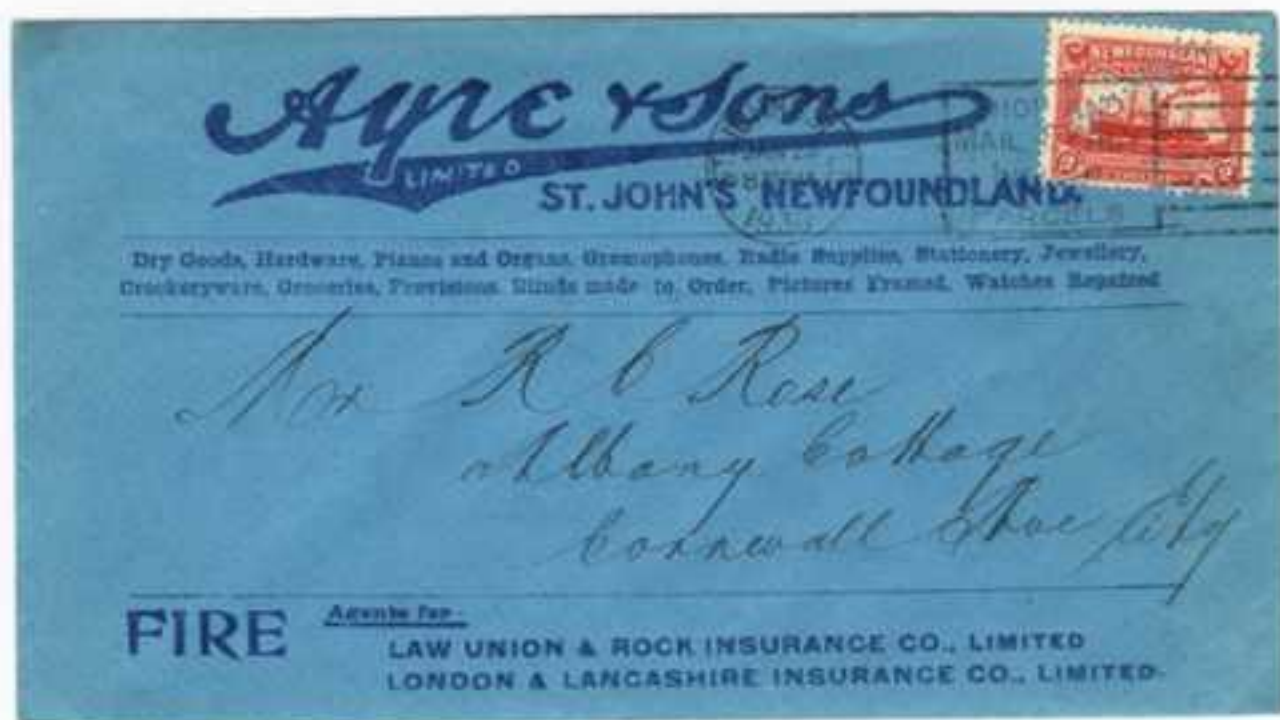 Ayre & Sons
LIMITED
ST. JOHN'S NEWFOUNDLAND.
NEWFOUNDLAND
MAIL
PARCELS
Dry Goods, Hardware, Pianos and Organs, Gramophones, Radio Supplies, Stationery, Jewellery,
Crockeryware, Groceries, Provisions. Blinds made to Order, Pictures Framed, Watches Repaired
Mr R C Rose
Albany Cottage
Cornwall Ave City
FIRE
Agents for
LAW UNION & ROCK INSURANCE CO., LIMITED
LONDON & LANCASHIRE INSURANCE CO., LIMITED.